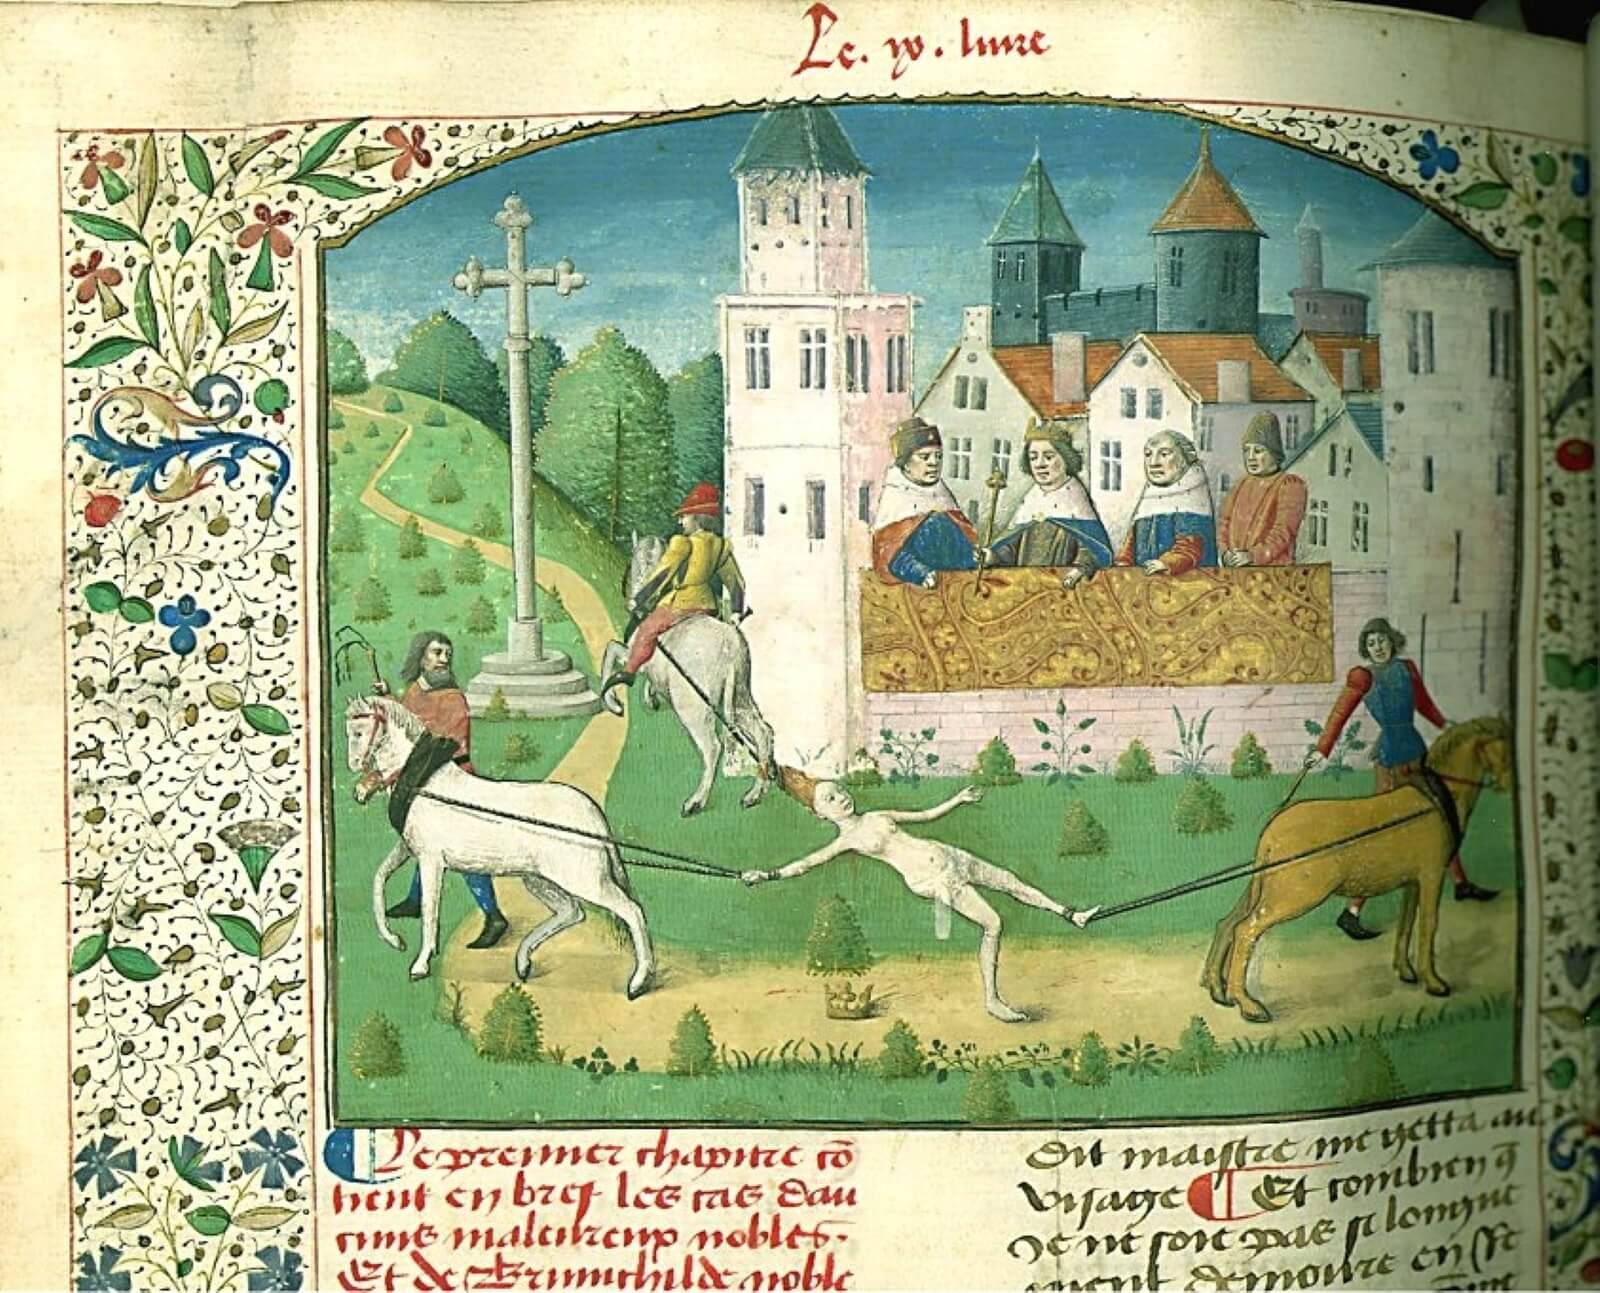 Le. ix. liure
Le premier chapitre cō
tient en brief les cas dau
cuns maleureux nobles.
Et de Brunnchilde noble
dit maistre me getta au
visage Et combien q̄
Je ne soie pas si longue
ment demoure en